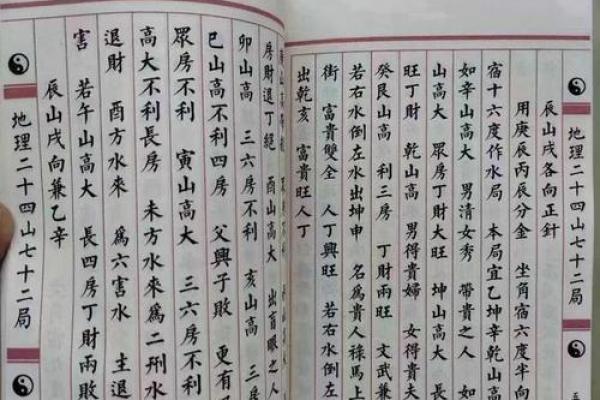 地理二十四山七十二局
辰山戌各向正針
用庚辰丙辰分金 坐角宿六度半向
宿十六度作水局 本局宜乙辛乾山高
如辛山高大 男清女秀 帶貴之人 如
山高大 眾房丁財大旺 坤山高大
旺丁財 乾山高 男得貴婦 女得貴夫
癸艮山高 利三房 丁財兩旺 文武兼
若右水倒左水出坤申 名為貴人祿馬上
街 富貴雙全 人丁興旺 若右水倒
出乾亥 富貴旺人丁
房財退丁絕 酉山高大 出盲眼之人
卯山高 三六房不利 亥山高 三
巳山高不利四房 父興子敗 更有
眾房不利 寅山高大 三六房不利
高大不利長房 未方水來為二刑水
退財 酉方水來 為六害水 主退
害 若午山高大 長四房丁財兩敗
辰山戌向兼乙辛
地理二十四山七十二局